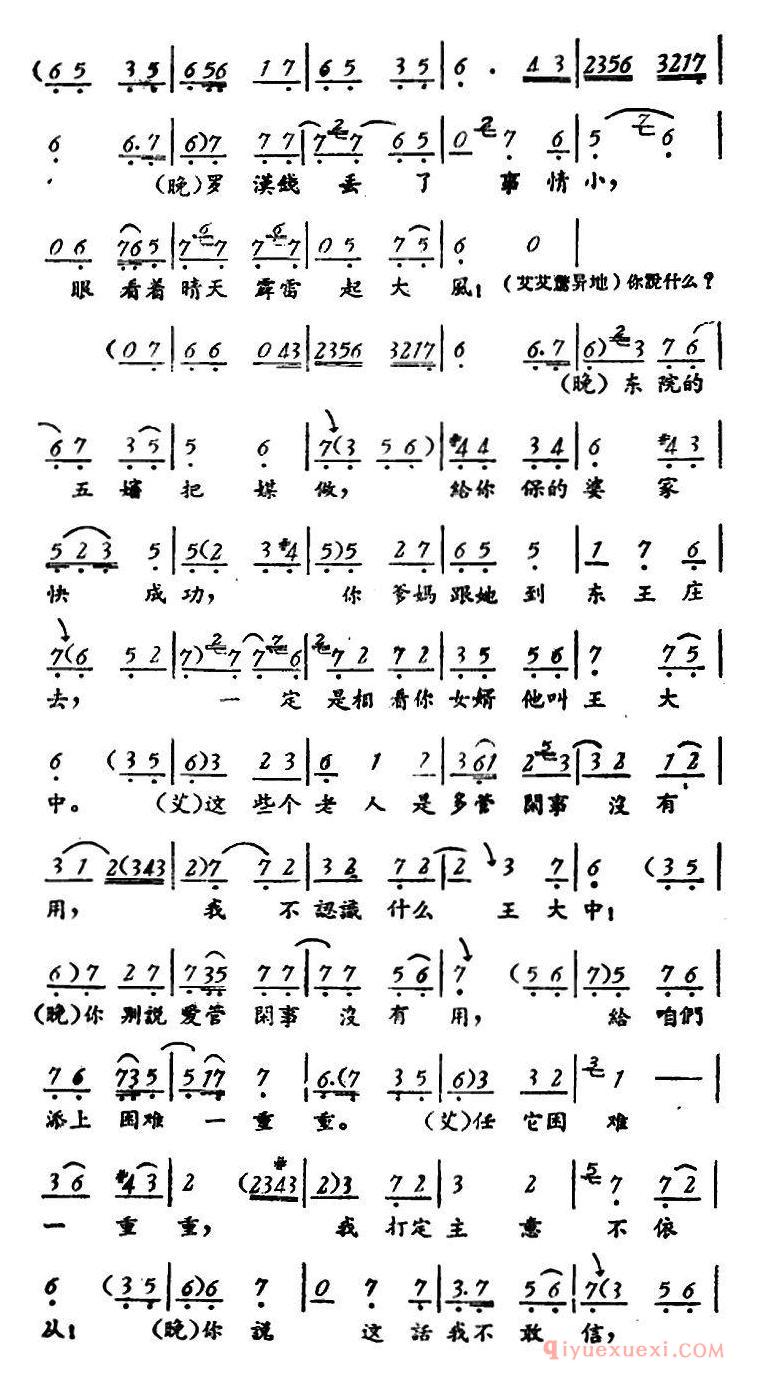 (6 5 3 5 | 6 56 1 7 | 6 5 3 5 | 6 · 4 3 | 2356 3217 |
6 6.7 | 6)7 7 7 | 7 2 7 6 5 | 0 2 7 6 | 5 7 6 |
(晚)罗 漢錢 丢 了 事 情 小,
0 6 765 | 7 6 7 7 6 7 | 0 5 7 5 | 6 0 |
眼 看着 晴天 霹雷 起 大 風; (艾艾驚异地)你說什么?
(0 7 | 6 6 0 43 | 2356 3217 | 6 6.7 | 6) 2 3 7 6 |
(晚) 东 院的
6 7 3 5 | 5 6 | 7(3 5 6) | #4 4 3 4 | 6 #4 3 |
五 嬸 把 媒 做, 給你 保的 婆 家
5 2 3 5 | 5(2 3 #4 | 5)5 2 7 | 6 5 5 | 1 7 6 |
快 成 功, 你 爹媽 跟她 到 东 王 庄
7(6 5 2 | 7) 2 7 7 7 6 | 2 7 2 7 2 | 3 5 5 6 | 7 7 5 |
去, 一 定 是相 看你 女婿 他叫 王 大
6 (3 5 | 6)3 2 3 | 6 1 2 | 3 61 2 5 3 | 3 2 1 2 |
中。 (艾)这 些个 老 人 是 多管 閑事 沒 有
3 1 2(343 | 2)7 7 2 | 3 2 7 2 | 2 3 7 | 6 (3 5 |
用, 我 不 認識 什么 王 大 中;
6)7 2 7 | 7 35 7 7 | 7 7 5 6 | 7 (5 6 | 7)5 7 6 |
(晚)你 别說 愛管 閑事 沒 有 用, 給 咱們
7 6 735 | 5 17 7 | 6.(7 3 5 | 6)3 3 2 | 3 1 — |
添上 困难 一 重 重。 (艾)任 它困 难
3 6 #4 3 | 2 (2343 | 2)3 7 2 | 3 2 | 5 7 7 2 |
一 重 重, 我 打定 主 意 不 依
6 (3 5 | 6)6 7 | 0 7 7 | 3.7 5 6 | 7(3 5 6 |
从; (晚)你 說 这 話 我不 敢 信,
qiyuexuexi.com